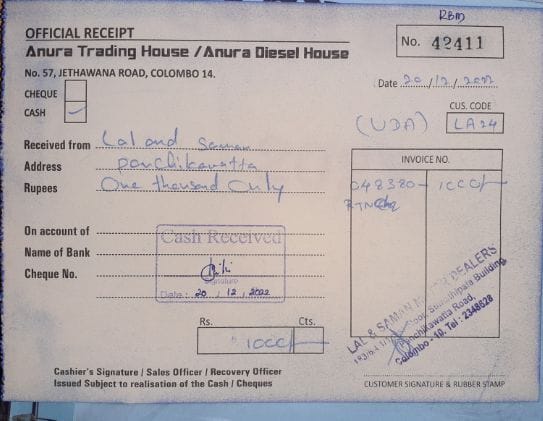 RBM
OFFICIAL RECEIPT
Anura Trading House / Anura Diesel House
No. 42411
No. 57, JETHAWANA ROAD, COLOMBO 14.
Date 20/12/2022
CHEQUE
CASH ✓
CUS. CODE
(UDA) LA24
Received from Lal and Saman
Address Panchikawatta
Rupees One thousand Only
INVOICE NO.
048380- 1000/-
RTN Chq
On account of
Name of Bank
Cheque No.
Cash Received
Signature
Date : 20 / 12 / 2022
Rs. Cts.
1000/-
LAL & SAMAN MOTOR DEALERS
Floor, Sumathipala Building,
Panchikawatta Road,
Colombo - 10. Tel : 2348628
Cashier's Signature / Sales Officer / Recovery Officer
Issued Subject to realisation of the Cash / Cheques
CUSTOMER SIGNATURE & RUBBER STAMP